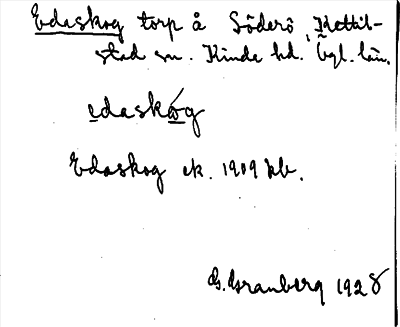 Edaskog torp å Söderö, Kettil-
stad sn. Kinde hd. Ögl. län.
edaskóg
Edaskog ek. 1909 kb.
G. Granberg 1928